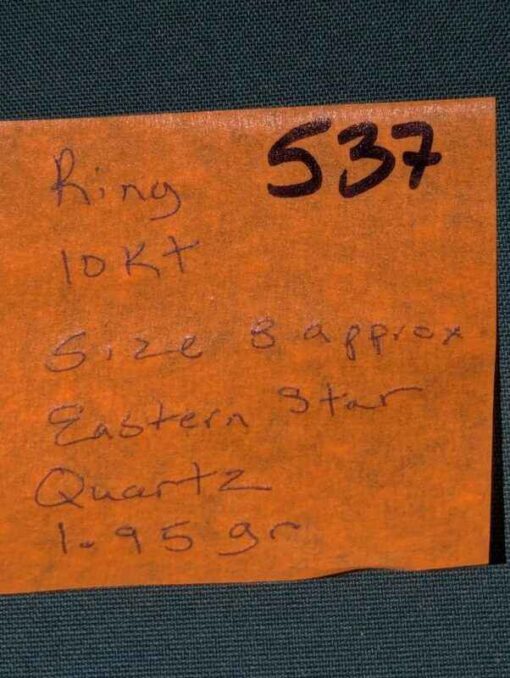 537
Ring
10 Kt
Size 8 approx
Eastern Star
Quartz
1.95 gr